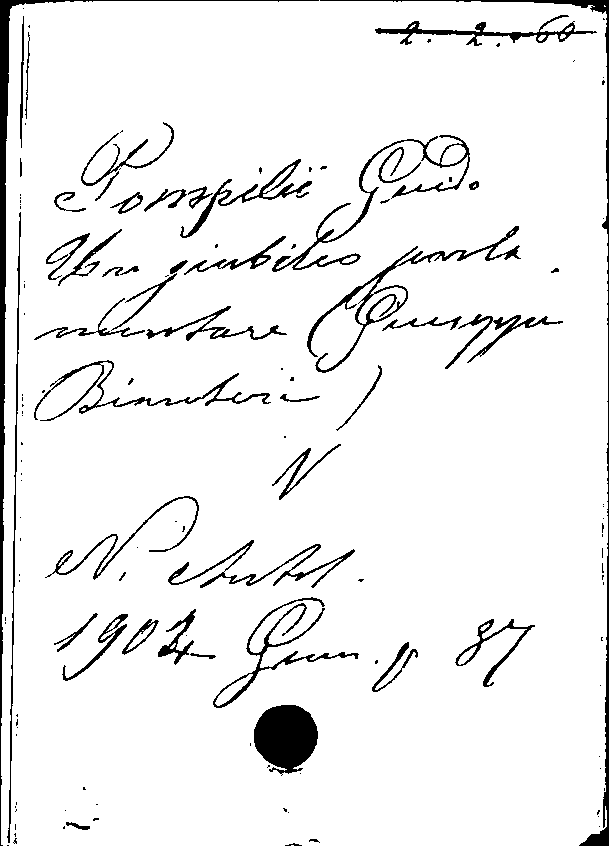 2. 2. 60
Pompilii Guido
Un giubileo parla
mentare (Giuseppe
Biancheri)
N
N. Antol.
1904 Genn. p 87